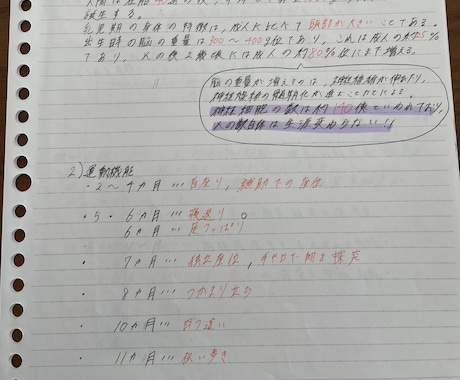 誕生する。
乳児期の身体の特徴は、成人に比べて頭部が大きいことである。
出生時の脳の重量は300〜400g位であり、これは成人の約25%
であり、人の後2歳頃には成人の約80%位にまで増える。
脳の重量が増えるのは、神経線維が伸びたり、
神経線維の髄鞘化が進むことによる。
神経細胞の数は約140億といわれており、
人の数自体は生涯変わらない!!
2) 運動機能
・2〜4カ月…首座り、補助での座位
・5・6カ月…寝返り。
6カ月…足つっぱり
・7カ月…独立座位、手や口で物を探究
・8カ月…つかまり立ち
・10カ月…四つ這い
・11カ月…伝い歩き